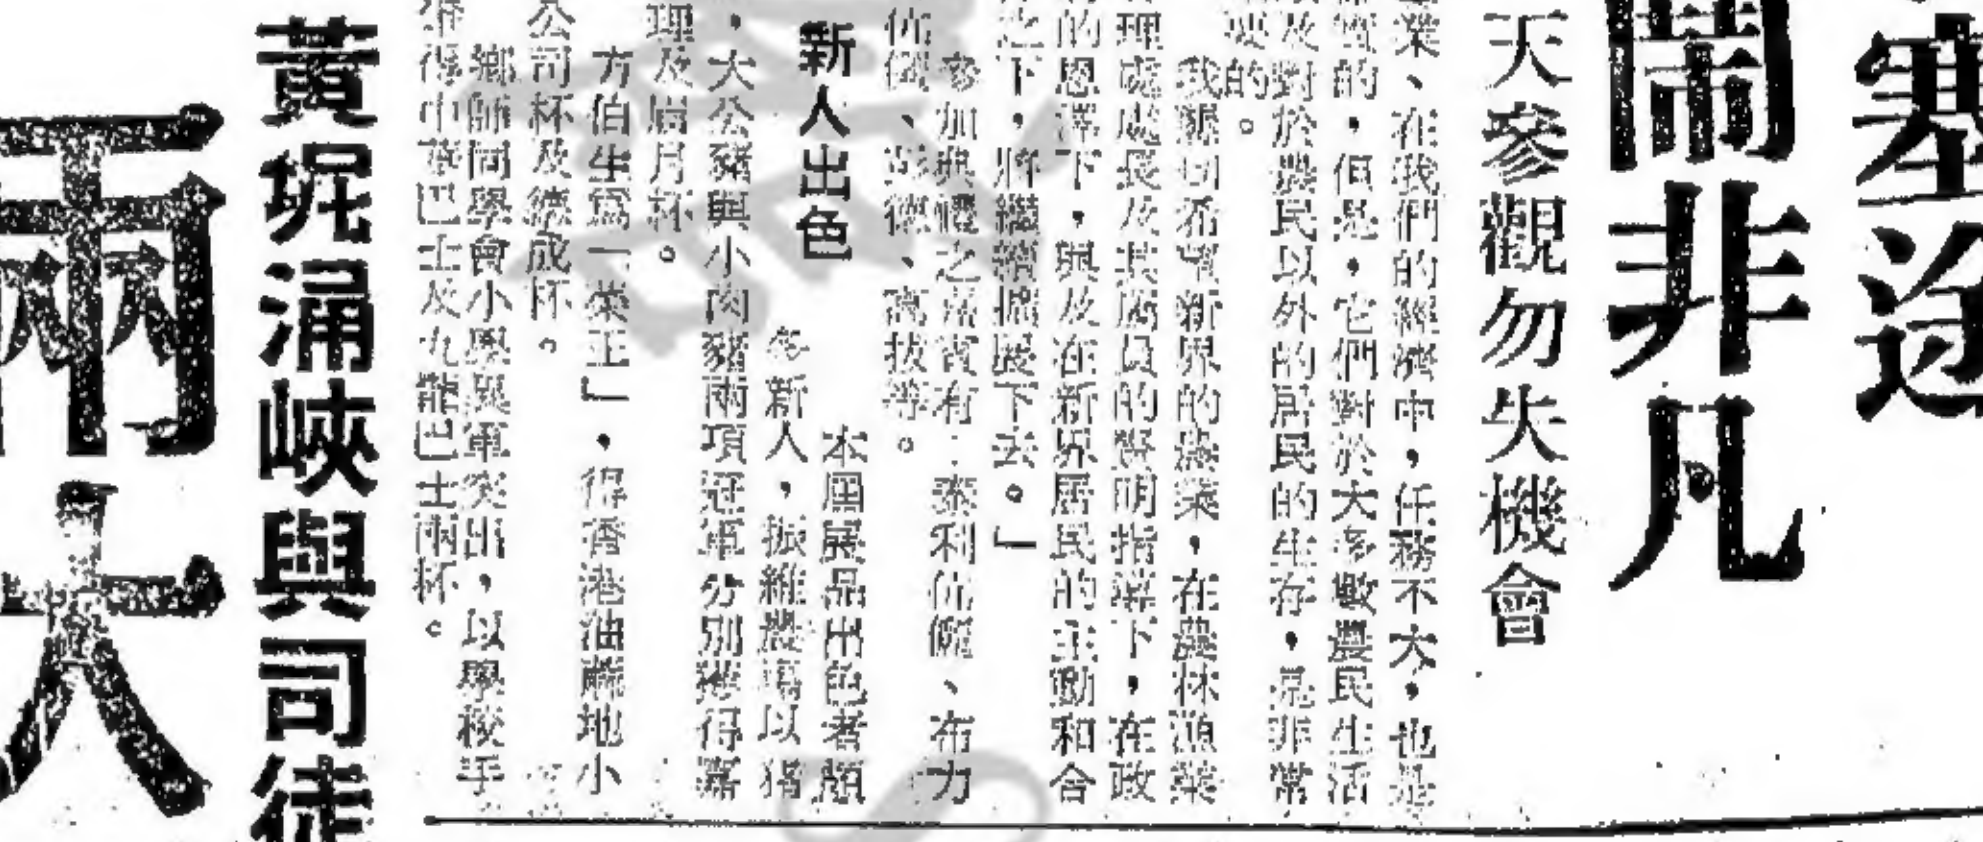 塞途
鬧非凡
天參觀勿失機會
業、在我們的經濟中，任務不大，也是
的，但是，它們對於大多數農民生活
及對於農民以外的居民的生存，是非常
要的。
我懇切希望新界的農業，在農林漁業
理處處長及其屬員的賢明指導下，在政
的恩澤下，與及在新界居民的主動和合
之下，將繼續擴展下去。」
參加典禮之嘉賓有：泰利佐治、布力
、彭德、高拔等。
新人出色
本屆展品出色者頗
多新人，振維農場以猪
，大公豬與小肉豬兩項冠軍分別獲得嘉
理及眉月杯。
方伯生爲「菜王」，得香港油蔴地小
公司杯及德成杯。
鄉師同學會小學異軍突出，以學校手
得中華巴士及九龍巴士兩杯。
黃坭涌峽與司徒
兩大